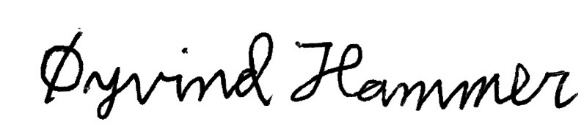 Øyvind Hammer